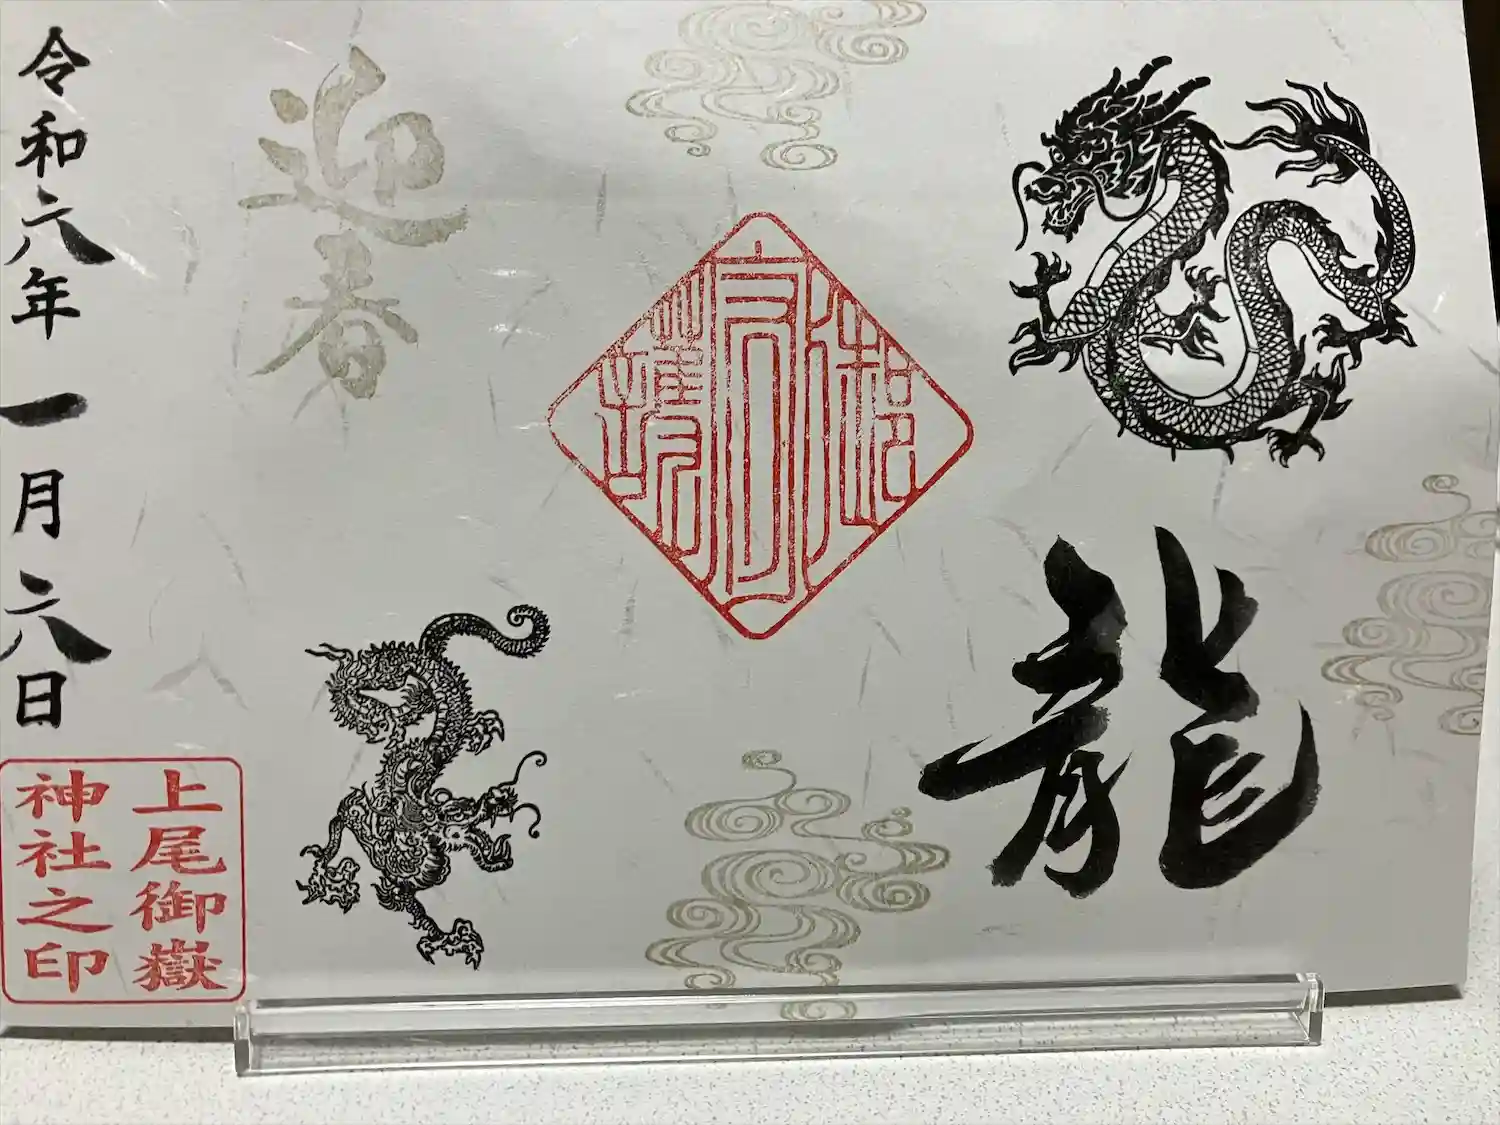 龍
御守護
迎春
令和六年一月六日
上尾御嶽
神社之印